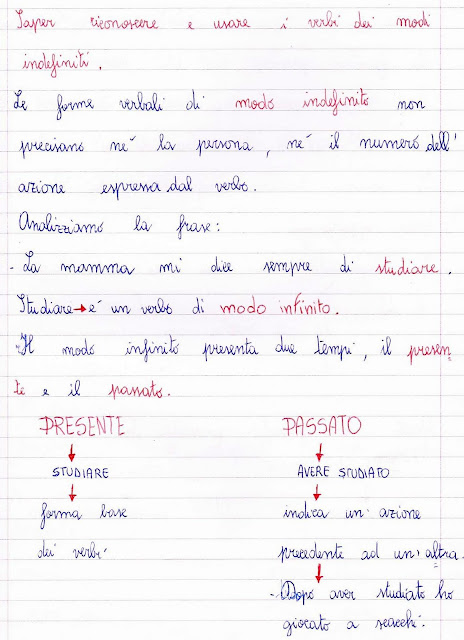 Saper riconoscere e usare i verbi dei modi
indefiniti.
Le forme verbali di modo indefinito non
precisano né la persona, né il numero dell'
azione espressa dal verbo.
Analizziamo la frase:
- La mamma mi dice sempre di studiare.
Studiare → é un verbo di modo infinito.
Il modo infinito presenta due tempi, il presen
te e il passato.
PRESENTE PASSATO
↓ ↓
STUDIARE AVERE STUDIATO
↓ ↓
forma base indica un' azione
dei verbi precedente ad un' altra.
↓
- Dopo aver studiato ho
giocato a scacchi.